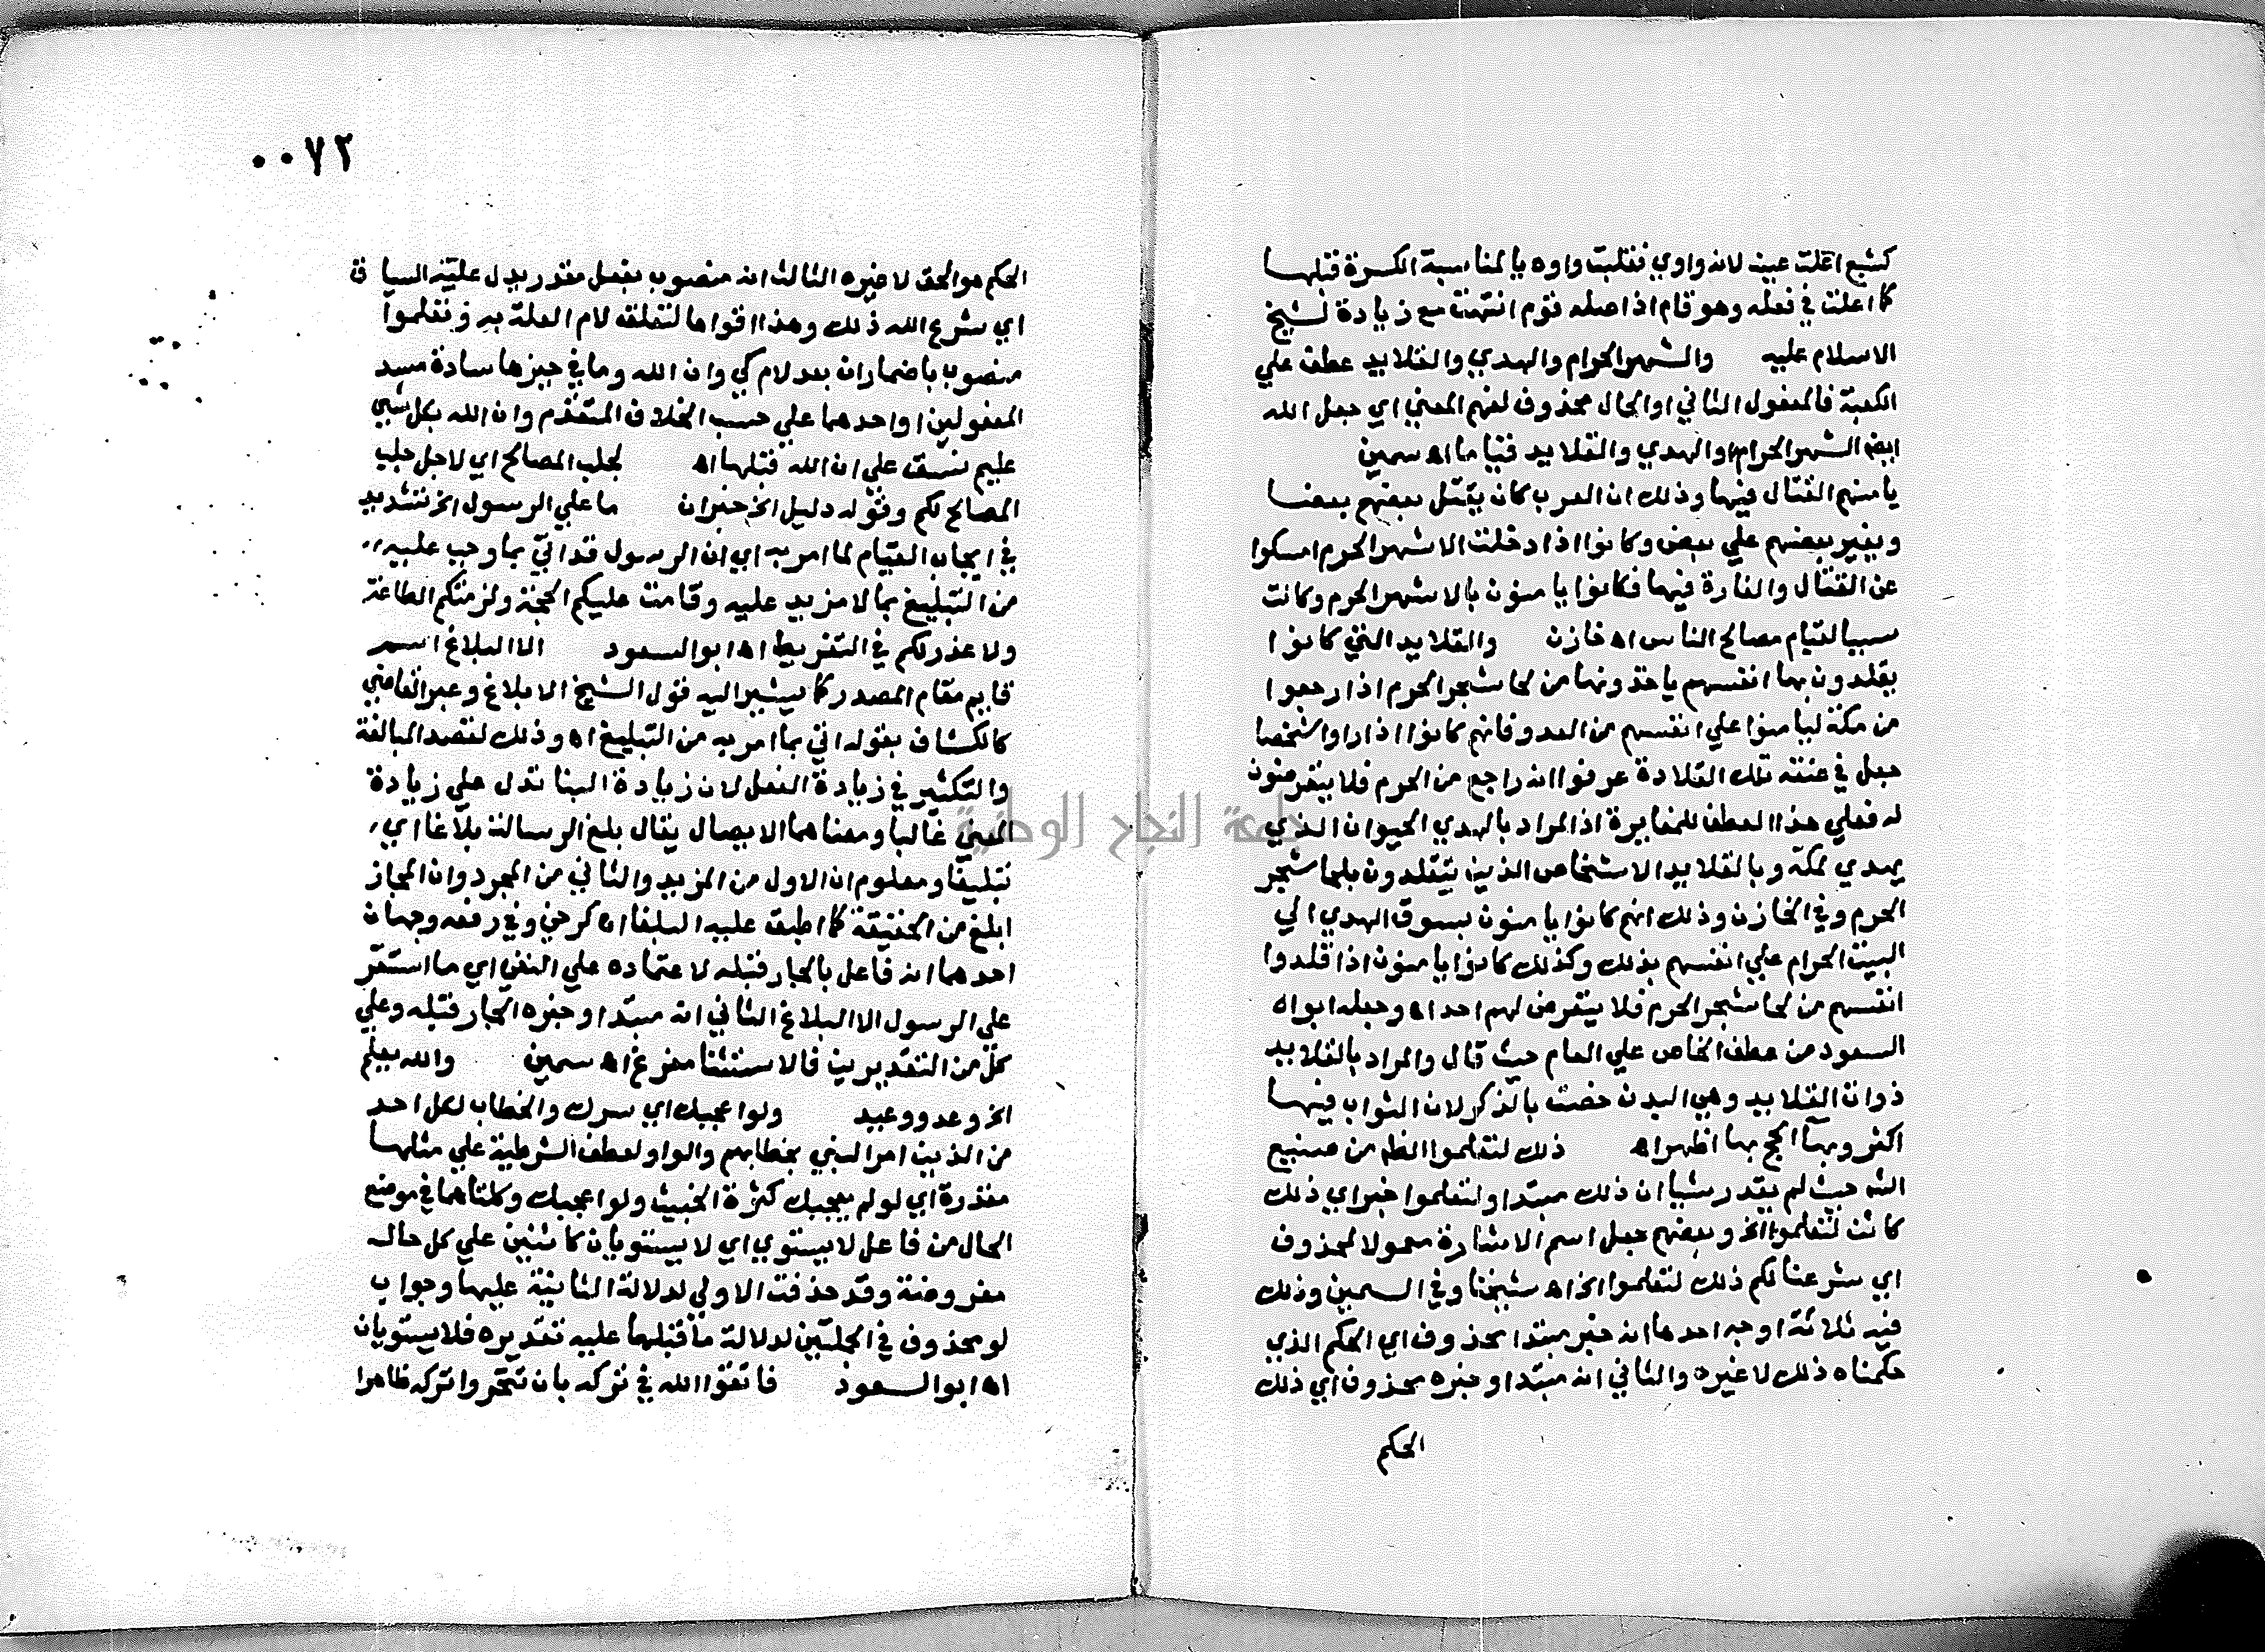 كشبع اعلت عينه لانه واوي فقلبت واوه يا لمناسبة الكسرة قبلها
كما اعلت في فعله وهو قام اذ اصله قوم انتهت مع زيادة لشيخ
الاسلام عليه والشهر الحرام والهدي والقلايد عطف علي
الكعبة فالمفعول الثاني او الحال محذوف لفهم المعني اي جعل الله
ايضا الشهر الحرام والهدي والقلايد قياما اه سمين
يامنهم القتال فيها وذلك ان العرب كان يقتل بعضهم بعضا
ويغير بعضهم علي بعض وكانوا اذا دخلت الاشهر الحرم امسكوا
عن القتال والغارة فيها فكانوا يامنون بالاشهر الحرم وكانت
سببا لقيام مصالح الناس اه خازن والقلايد التي كانوا
يقلدون بها انفسهم ياخذونها من لحا شجر الحرم اذا رجعوا
من مكة ليامنوا علي انفسهم من العدو فانهم كانوا اذا راوا شخصا
جعل في عنقه تلك القلادة عرفوا انه راجع من الحرم فلا يتعرضون
له فعلي هذا العطف للمغايرة اذ المراد بالهدي الحيوان الذي
يهدي لمكة وبالقلايد الاشخاص الذين يتقلدون بلحا شجر
الحرم وفي الخازن وذلك انهم كانوا يامنون بسوق الهدي الي
البيت الحرام علي انفسهم بذلك وكذلك كانوا يامنون اذا قلدوا
انفسهم من لحا شجر الحرم فلا يتعرض لهم احد اه وجعله ابو اه
السعود من عطف الخاص علي العام حيث قال والمراد بالقلايد
ذوات القلايد وهي البدن خصت بالذكر لان الثواب فيها
اكثر وبها الحج بها اظهر اه ذلك لتعلموا الظم من صنيع
الشه حيث لم يقدر شيا ان ذلك مبتدا ولتعلموا خبر اي ذلك
كائن لتعلموا الخ وبعضهم جعل اسم الاشارة معمولا لمحذوف
اي شرعنا لكم ذلك لتعلموا الخ اه شيخنا وفي السمين وذلك
فيه ثلاثة اوجه احدها انه خبر مبتدا محذوف اي الحكم الذي
حكمناه ذلك لا غيره والثاني انه مبتدا وخبره محذوف اي ذلك
الحكم
٠٠٧٢
الحكم هو الحق لا غيره الثالث انه منصوب بفعل مقدر يدل عليه السياق
اي شرع الله ذلك وهذا اقواها لتعلقه لام العلة به وتعلموا
منصوب باضمار ان بعد لام كي وان الله وما في حيزها سادة مسد
المفعولين او احدهما علي حسب الخلاف المتقدم وان الله بكل شي
عليم نسق علي ان الله قبلها اه لجلب المصالح اي لاجل جلب
المصالح لكم وقوله دليل الخ خبر ان ما علي الرسول الخ تشديد
في ايجاب القيام لما امر به اي ان الرسول قد اتي بما وجب عليه
من التبليغ بما لا مزيد عليه وقامت عليكم الحجة ولزمتكم الطاعة
ولا عذر لكم في التفريط اه ابو السعود الا البلاغ اسم
قايم مقام المصدر كما يشير اليه قول الشيخ الابلاغ وعبر القاضي
كالكشاف بقوله اتي بما امر به من التبليغ اه وذلك لقصد المبالغة
والتكثير في زيادة الفعل لان زيادة البنا تدل علي زيادة
المعني غالبا ومعناهما الايصال يقال بلغ الرسالة بلاغا اي
تبليغا ومعلوم ان الاول من المزيد والثاني من المجرد وان المجاز
ابلغ من الحقيقة كما اطبق عليه البلغا اه كرخي وفي رفعه وجهان
احدهما انه فاعل بالجار قبله لاعتماده علي النفي اي ما استقر
علي الرسول الا البلاغ الثاني انه مبتدا وخبره الجار قبله وعلي
كل من التقديرين فالاستثنا مفرغ اه سمين والله يعلم
الخ وعد ووعيد ولو اعجبك اي سرك والخطاب لكل احد
من الذين امر النبي بخطابهم والواو لعطف الشرطية علي مثلها
مقدرة اي لو لم يعجبك كثرة الخبيث ولو اعجبك وكلتاهما في موضع
الحال من فاعل لا يستوي اي لا يستويان كائنين علي كل حال
مفروضة وقد حذفت الاولي لدلالة الثانية عليها وجواب
لو محذوف في الجملتين لدلالة ما قبلها عليه تقديره فلا يستويان
اه ابو السعود فاتقوا الله في تركه بان تتحروا تركه ظاهرا
جامعة النجاح الوطنية